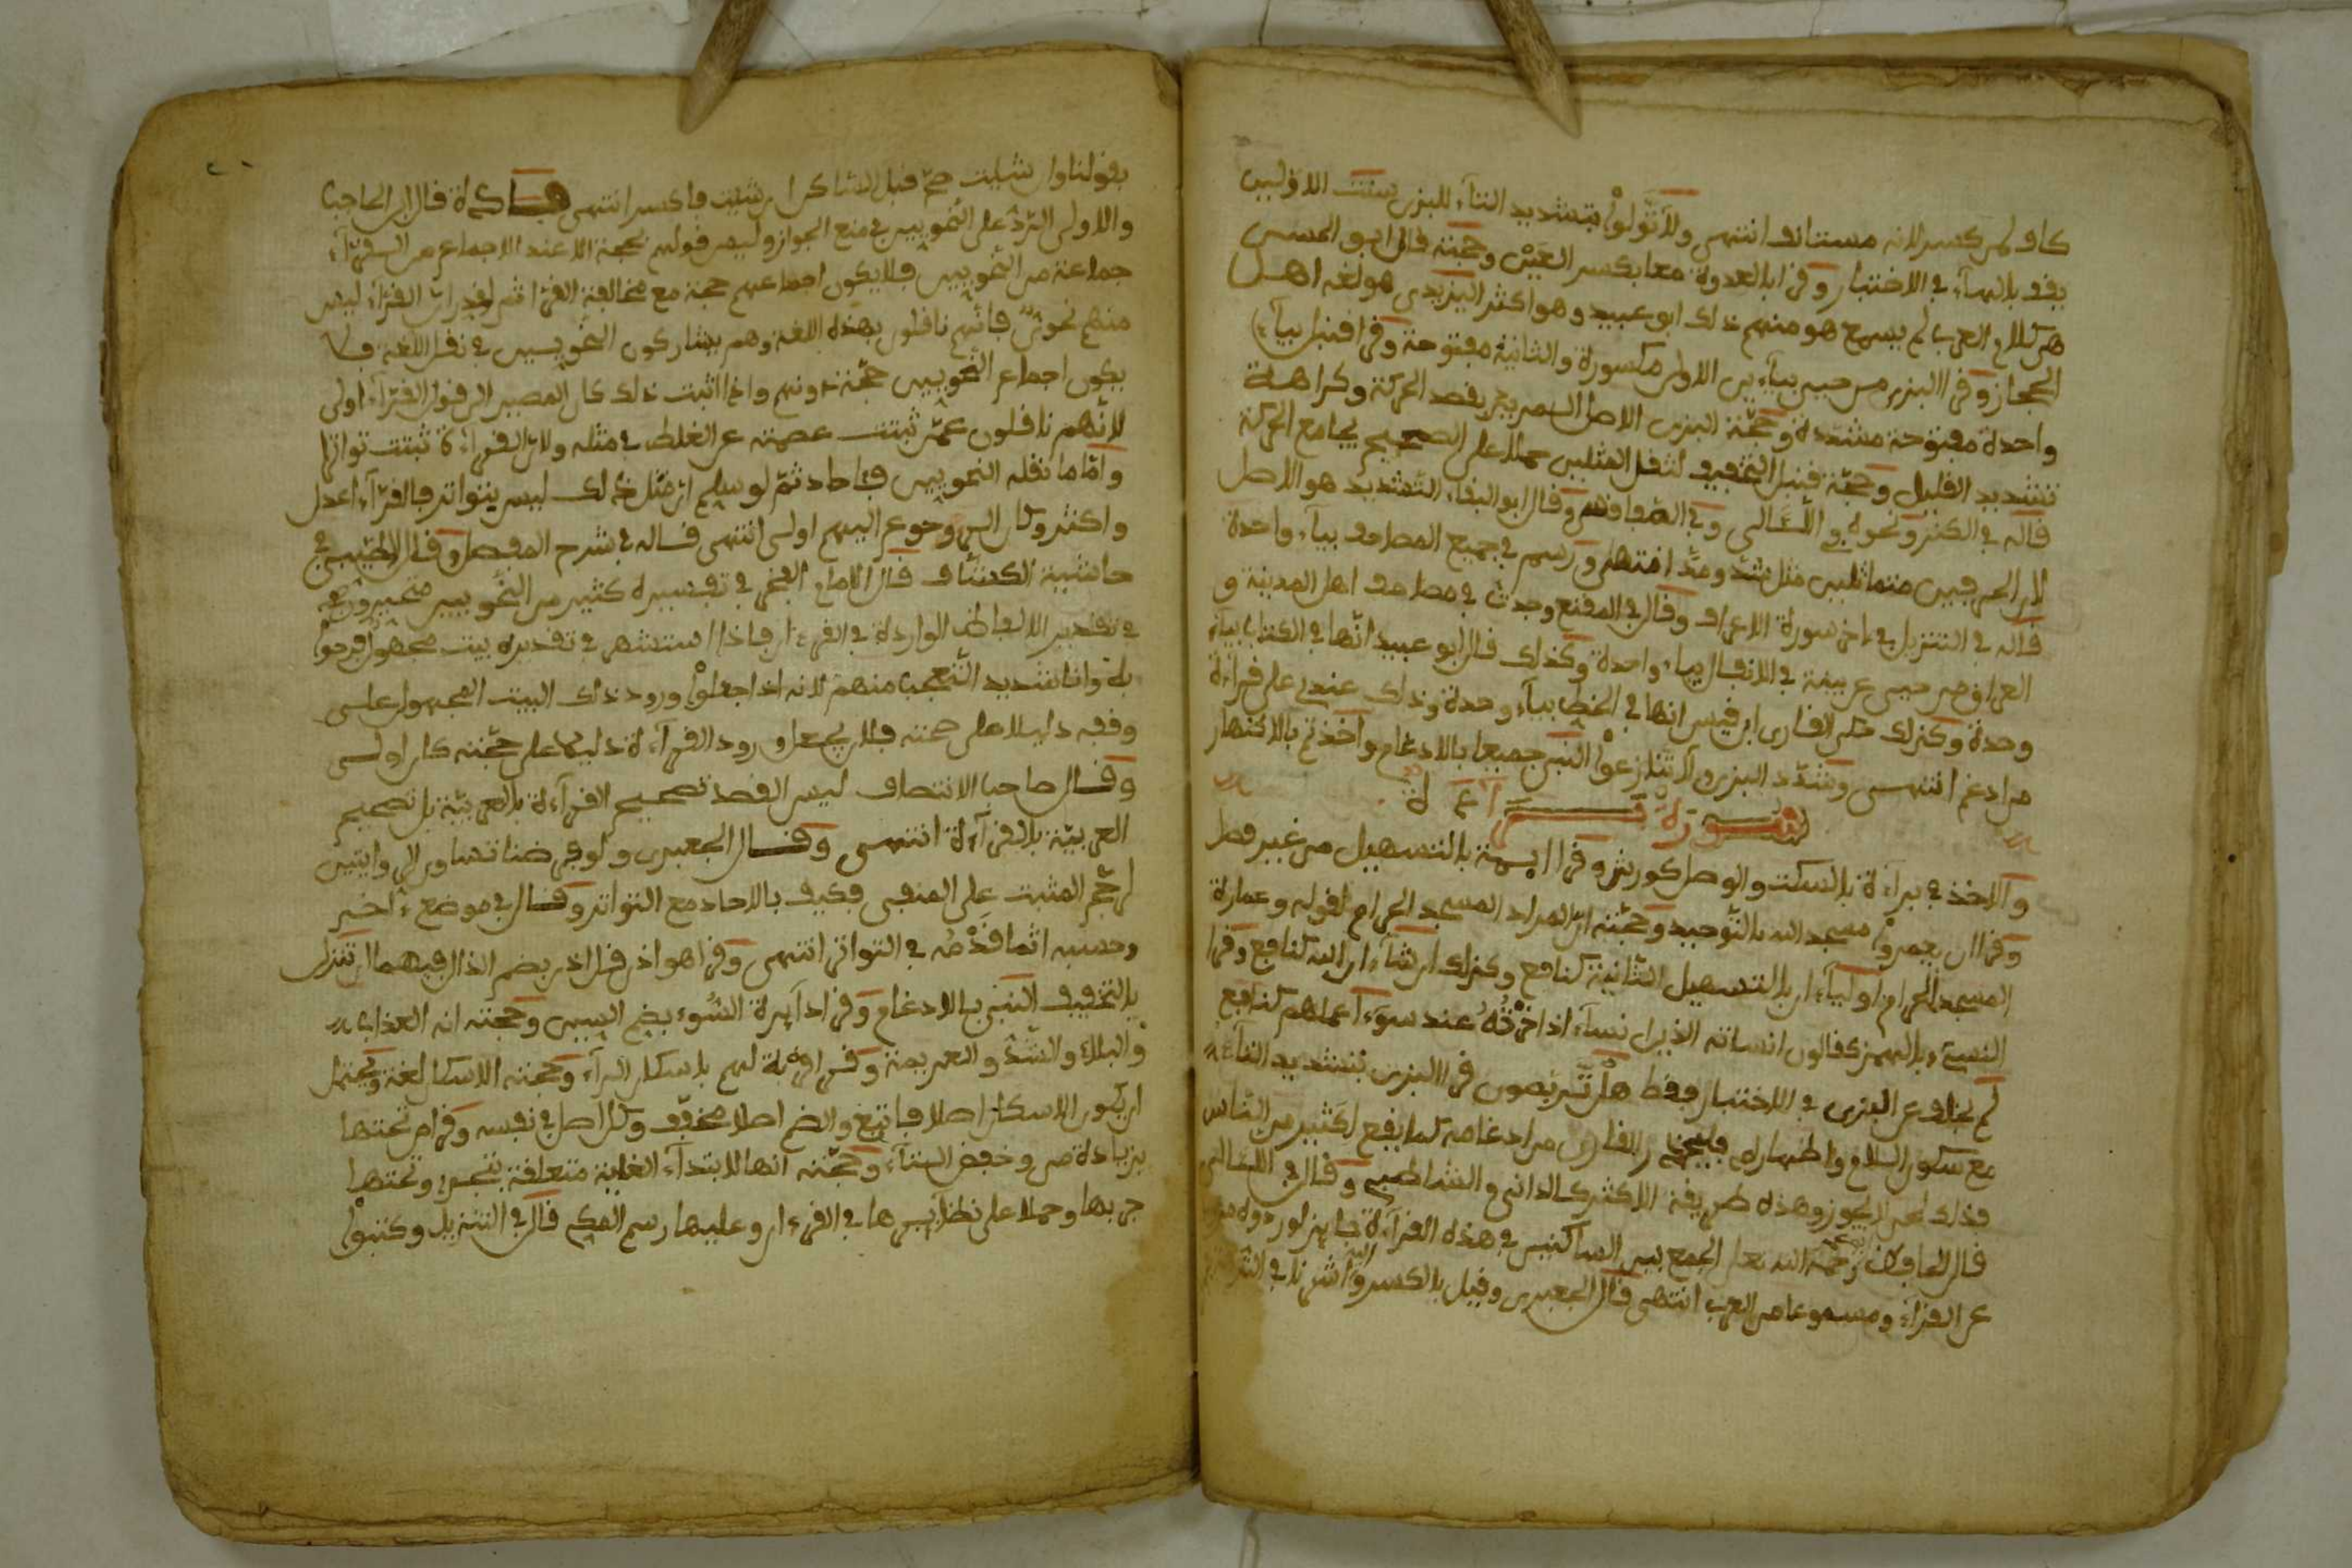 كاف لمن كسر لانه مستانف انتهى ولا تولوا بتشديد التاء للبزى سنت الاولين
يقف بالهاء في الاختبار وقرا بالعدوة معا بكسر العين وحجته قال ابو الحسن
هو كلام العرب لم يسمع هو منهم ذلك ابو عبيد وهو اكثر اليزيدى هو لغة اهل
الحجاز وقرا البزى من حيي بياءين الاولى مكسورة والثانية مفتوحة وقرا قنبل بياء
واحدة مفتوحة مشددة وحجة البزى الاصل السمر بجر بقصد الحركة وكراهة
تشديد القليل وحجة قنبل التخفيف لثقل المثلين حملا على الصحيح بجامع الحركة
قاله في الكنز ونحوه في اللئالى وفي وقال ابو البقاء التشديد هو الاصل
لان الحرفين متماثلين مثل شد ومد انتهى ورسم في جميع المصاحف بياء واحدة
قاله في التنزيل في ءاخر سورة الاعراف وقال في المقنع وجدت في مصاحف اهل المدينة و
العراق من حيى عن بينة في الانفال بياء واحدة وكذلك قال ابو عبيد انها في الكتاب بياء
وحدة وكذلك حكى الغازى ابن قيس انها في الخط بياء وحدة وذلك عندى على قراءة
من ادغم انتهى وشدد البزى ولا تنازعوا النبى جميعا بالادغام واخذتم بالاظهار
سورة براءة
والاخذ في براءة بالسكت والوصل كورش وقرا ايمة بالتسهيل من غير فصل
وقرا ان يعمروا مسجد الله بالتوحيد وحجته ان المراد المسجد الحرام لقوله وعمارة
المسجد الحرام اولياء ان بالتسهيل الثانية كنافع وكذلك ان شاء ان الله كنافع وقرا
النسيء بالهمز كقالون انساته الذيران نساء اذا اخرته عند سوء اعملهم كنافع
لم يختلف عن البزى في الاختبار فقط هل تربصون قرا البزى بتشديد التاء
مع سكون اللام واظهاره فليحذر القارى من ادغامه كما يقع لكثير من الناس
فذلك لحن لا يجوز وهذه طريقة الاكثر كالدانى والشاطبى وقال في اللئالى
قال الحافظ رحمة الله تعلى الجمع بين الساكنين في هذه القراءة جايز لوروده
عن القراء ومسموعا من العرب انتهى قال الجعبرى وقيل بالكسر واشرنا اليه في النزهة
بقولنا وان شيت صح قبل الساكن ان شيت فاكسر انتهى فايدة قال ابن الحاجب
والاولى الرد على النحويين في منع الجواز وليس قولهم بحجة الا عند الاجماع من القراء
جماعة من النحويين فلا يكون اجماعهم حجة مع مخالفة القراء ثم لو قدر ان القراء ليس
منهم نحوى فانهم ناقلون بهذه اللغة وهم يشاركون النحويين في نقل اللغة فلا
يكون اجماع النحويين حجة دونهم واذا اثبت ذلك كان المصير الى قول القراء اولى
لانهم ناقلون عمن ثبتت عصمته عن الغلط في مثله ولان القراءة ثبتت تواترا
واما ما نقله النحويين فئاحاد ثم لو سلم ان مثل ذلك ليس بتواتر فالقراء اعدل
واكثر وكان الرجوع اليهم اولى انتهى قاله في شرح المفصل وقال الطيبى في
حاشية الكشاف قال الامام الفخر في تفسيره كثير من النحويين متحيرون
في تقدير الالفاظ الواردة في القرءان فاذا استشهر في تقديره بيت مجهول فرحوا
به وانا شديد التعجب منهم لانه اذا جعلوا ورود ذلك البيت المجهول على
وفقه دليلا على صحته فلان يجعلوا ورود القراءة دليلا على صحته كان اولى
وقال صاحب الانتصاف ليس القصد تصحيح القراءة بالعربية بل تصحيح
العربية بالقراءة انتهى وقال الجعبرى ولو فرضنا تساوى الروايتين
لرجح المثبت على المنفى فكيف بالاحاد مع التواتر وقال في موضع ءاخر
وحسبه اثما قدحه في التواتر انتهى وقرا هو اذن قل اذن بضم الذال فيهما ان تنزل
بالتخفيف النبى بالادغام وقرا دايرة السوء بضم السين وحجته انه العذاب
والبلاء والشد والهزيمة وقرا قربة لهم باسكان الراء وحجته الاسكان لغة ويحتمل
ان يكون الاسكان اصلا فاتبع والضم اصلا مخفف وكل اصل في نفسه وقرا من تحتها
بزيادة من وخفض التاء وحجته انها لابتداء الغاية متعلقة بتجرى وتحتها
جر بها وحملا على نظايرها في القرءان وعليها رسم المكى قال في التنزيل وكتبوا